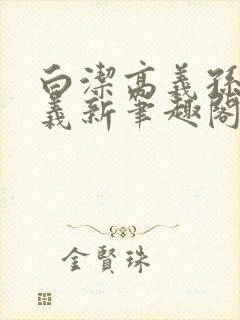 白潔高義孫
義新筆趣閣
金賢珠